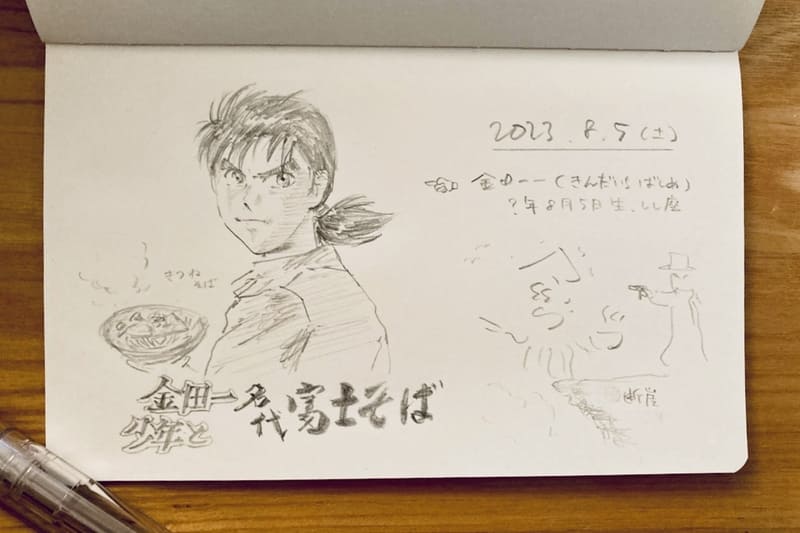 2023.8.5(土)
金田一一(きんだいちはじめ)
?年8月5日生、しし座
きつね
そば
金田一
少年と
名代
富士そば
断崖